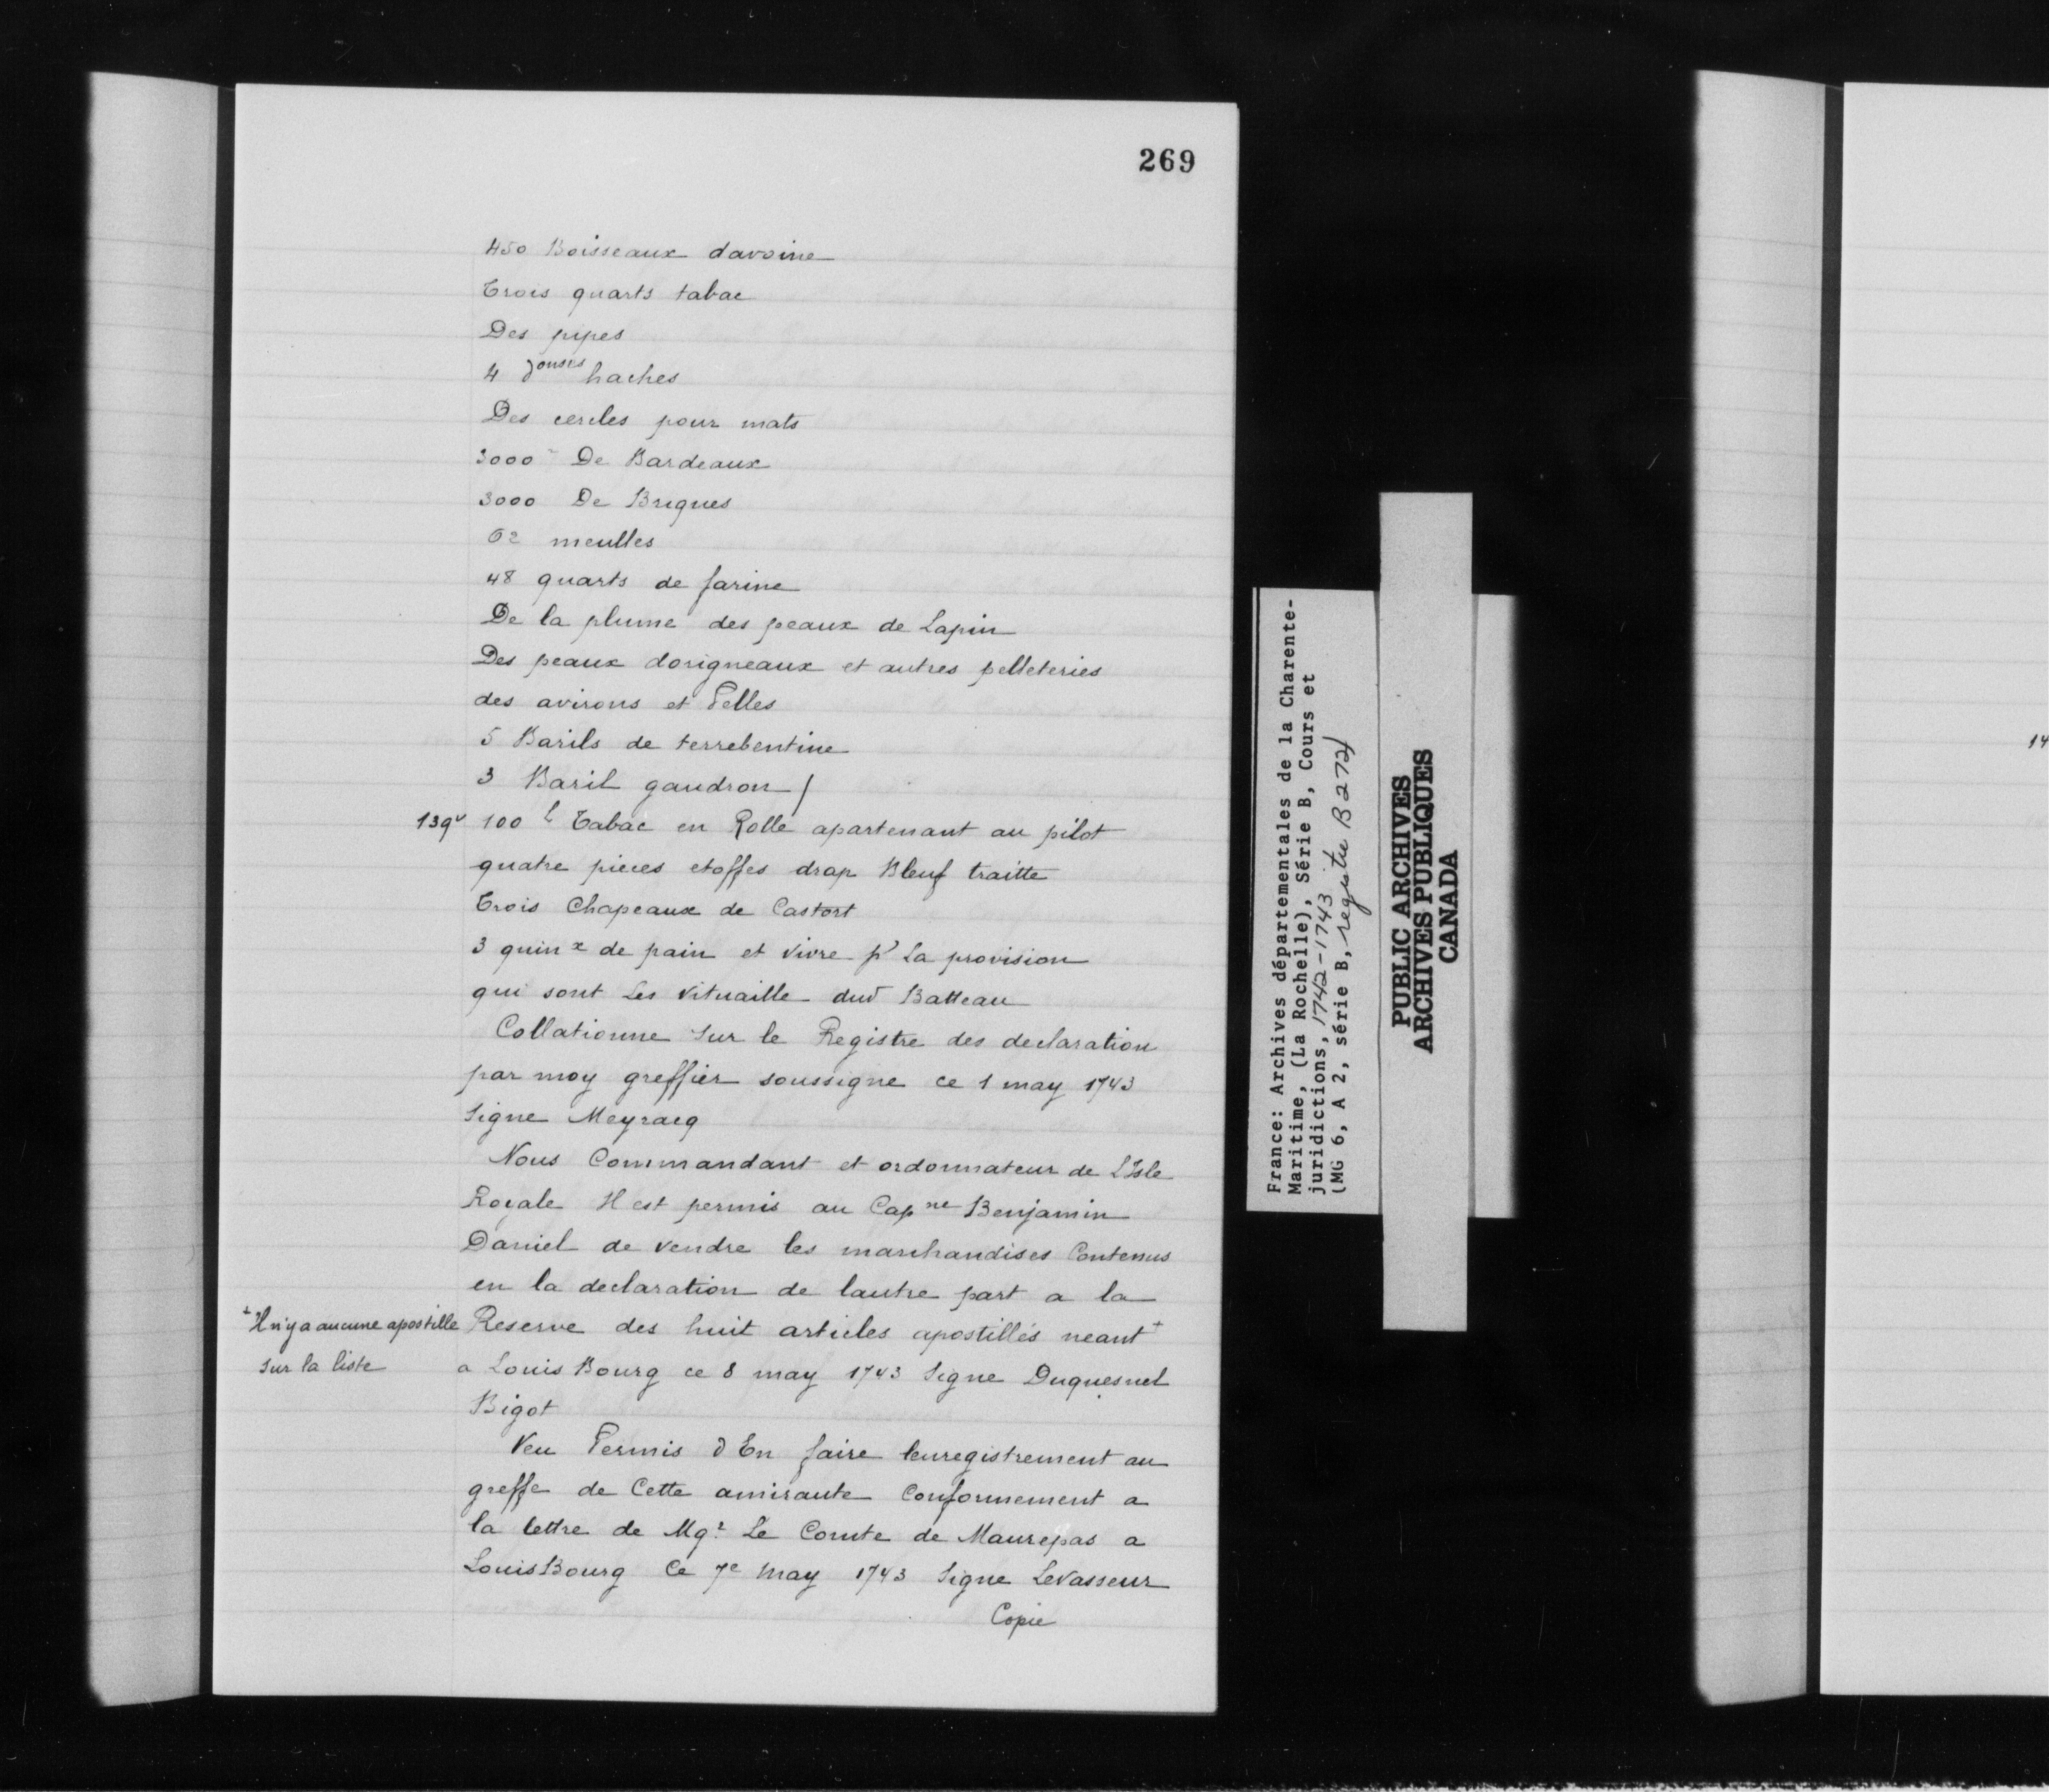 269
450 Boisseaux davoine
Trois quarts tabac
Des pipes
4 douses haches
Des cercles pour mats
3000 De Bardeaux
3000 De Briques
62 meulles
48 quarts de farine
De la plume des peaux de Lapin
Des peaux dorigneaux et autres pelleteries
des avirons et Pelles
5 Barils de terrebentine
3 Baril gaudron /
139v 100 l Tabac en Rolle apartenant au pilot
quatre pieces etoffes drap Bleuf traitte
Trois Chapeaux de Castort
3 quinx de pain et vivre pr La provision
qui sont Les Vituaille dud Batteau
Collationne sur le Registre des declaration
par moy greffier soussigne ce 1 may 1743
Signe Meyracq
Nous Commandant et ordonnateur de L'Isle
Royale Il est permis au Capne Benjamin
Daniel de vendre les marchandises Contenus
en la declaration de lautre part a la
Reserve des huit articles apostillés neant +
+ Il n'y a aucune apostille
sur la liste
a Louis Bourg ce 8 may 1743 Signe Duquesnel
Bigot
Veu Permis d En faire lenregistrement au
greffe de Cette amiraute Conformement a
la lettre de Mgr Le Comte de Maurepas a
LouisBourg Ce 7e May 1743 Signe LeVasseur
Copie
France: Archives départementales de la Charente-
Maritime, (La Rochelle), Série B, Cours et
juridictions, 1742-1743
(MG 6, A 2, série B, registre B 272)
PUBLIC ARCHIVES
ARCHIVES PUBLIQUES
CANADA
14